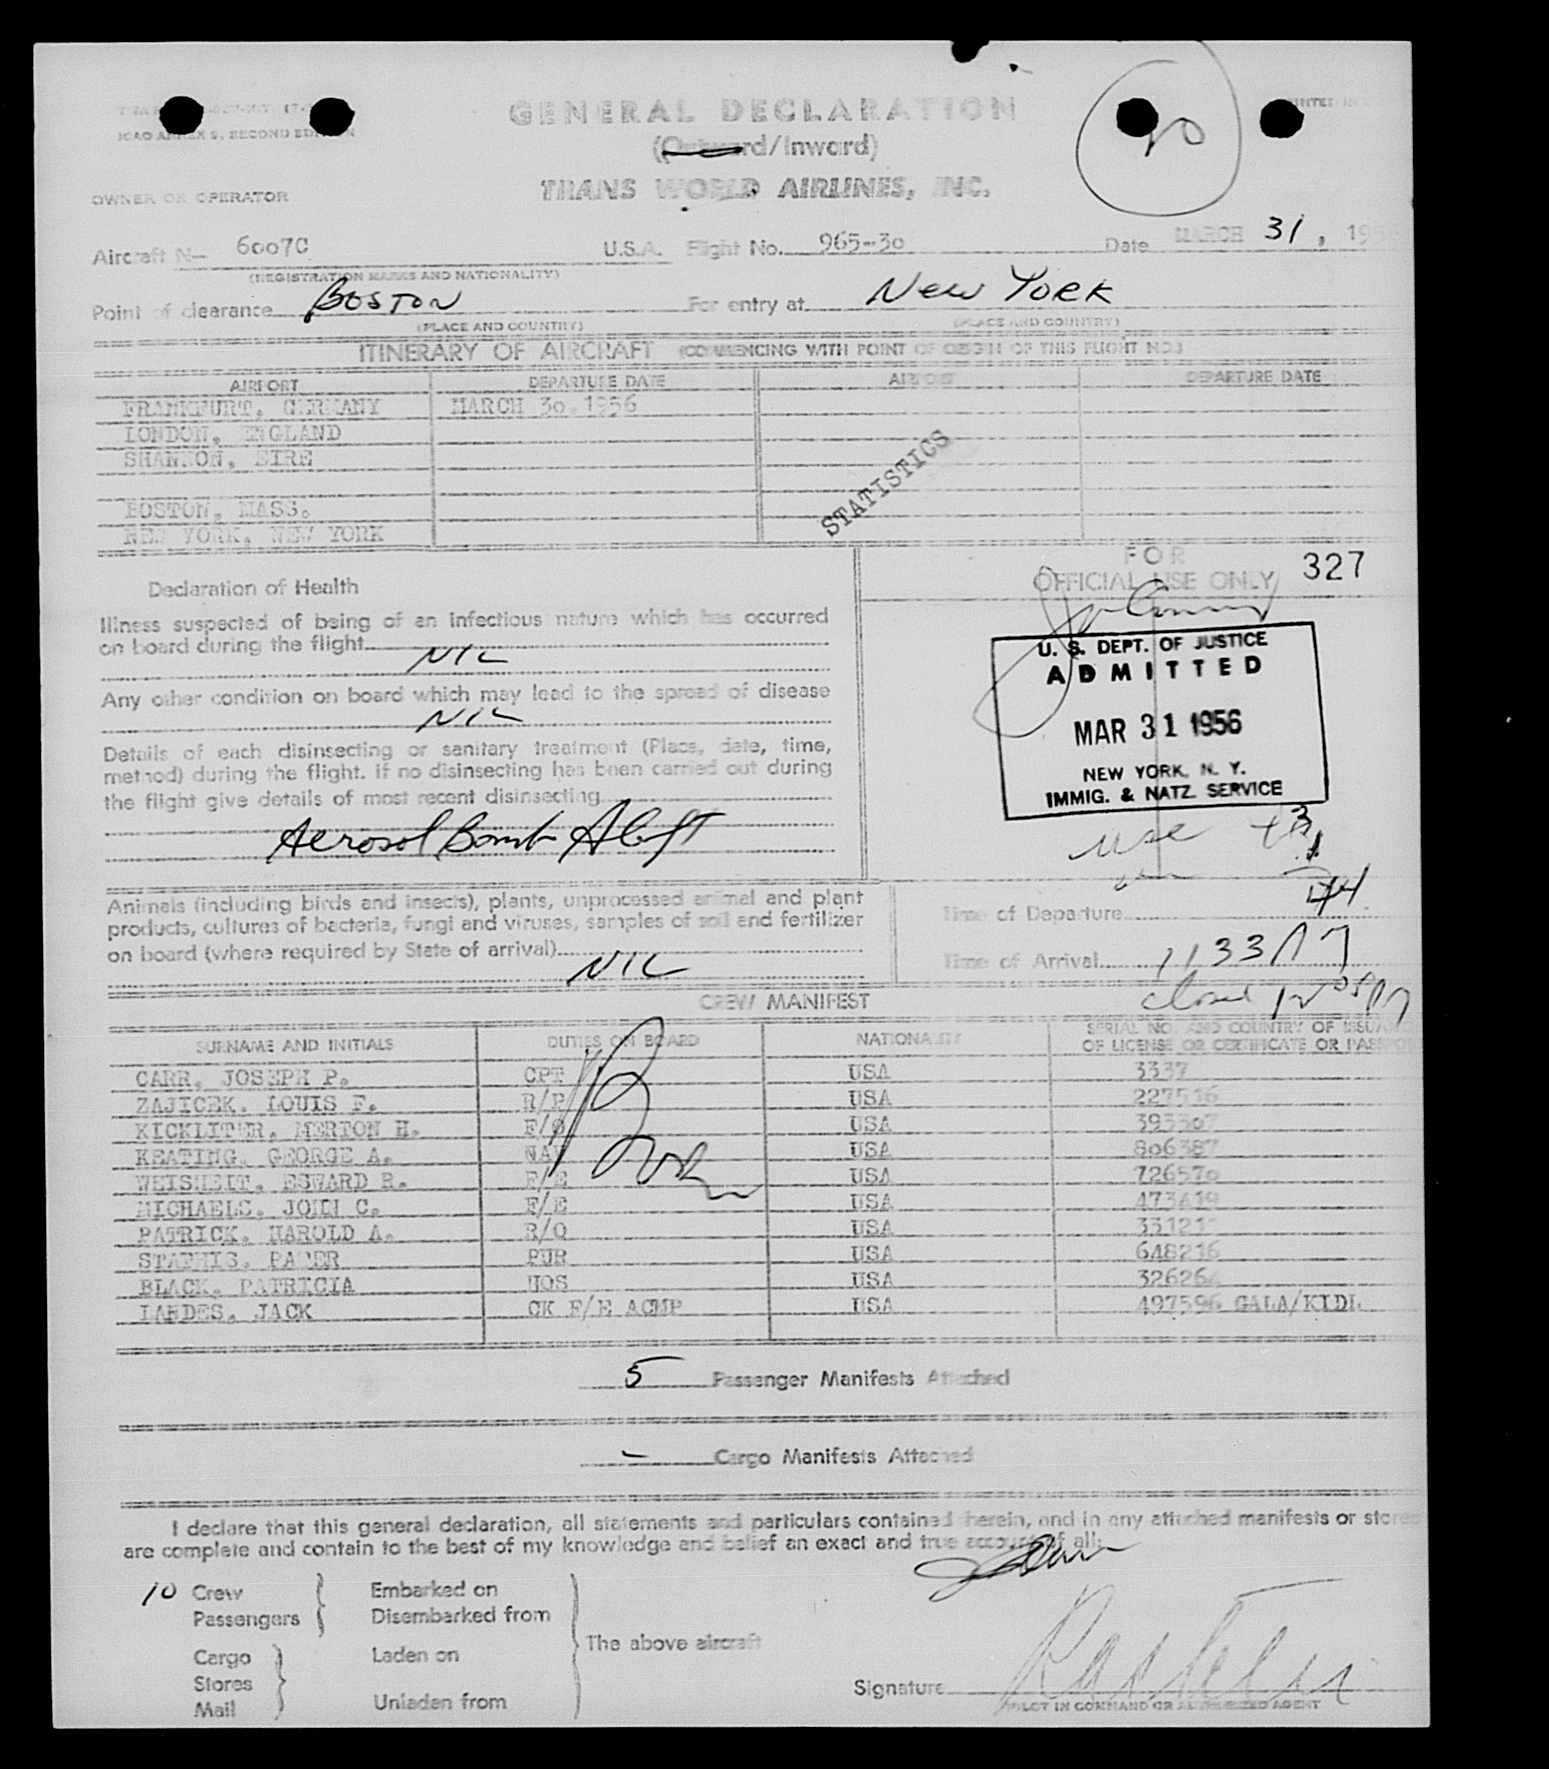 ICAO ANNEX 9, SECOND EDITION
GENERAL DECLARATION
(Outward/Inward)
90
TRANS WORLD AIRLINES, INC.
OWNER OR OPERATOR
Aircraft N— 6007C U.S.A. Flight No. 965-30 Date MARCH 31, 195
(REGISTRATION MARKS AND NATIONALITY)
Point of clearance BOSTON For entry at New YORK
(PLACE AND COUNTRY) (PLACE AND COUNTRY)
ITINERARY OF AIRCRAFT (COMMENCING WITH POINT OF ORIGIN OF THIS FLIGHT NO.)
AIRPORT DEPARTURE DATE AIRPORT DEPARTURE DATE
FRANKFURT, GERMANY MARCH 30.1956
LONDON, ENGLAND
SHANNON, EIRE
STATISTICS
BOSTON, MASS.
NEW YORK, NEW YORK
FOR
OFFICIAL USE ONLY 327
Declaration of Health
Illness suspected of being of an infectious nature which has occurred
on board during the flight NIL
Any other condition on board which may lead to the spread of disease
NIL
Details of each disinsecting or sanitary treatment (Place, date, time,
method) during the flight. If no disinsecting has been carried out during
the flight give details of most recent disinsecting
Aerosol Bomb Aloft
U. S. DEPT. OF JUSTICE
ADMITTED
MAR 31 1956
NEW YORK, N. Y.
IMMIG. & NATZ. SERVICE
use
Animals (including birds and insects), plants, unprocessed animal and plant
products, cultures of bacteria, fungi and viruses, samples of soil and fertilizer
on board (where required by State of arrival)
NIL
Time of Departure
Time of Arrival 1133
closed
CREW MANIFEST
SURNAME AND INITIALS DUTIES ON BOARD NATIONALITY SERIAL NO. AND COUNTRY OF ISSUANCE
OF LICENSE OR CERTIFICATE OR PASSPORT
CARR, JOSEPH P. CPT USA 3337
ZAJICEK, LOUIS F. R/P USA 227516
KICKLITER, MERTON H. F/O USA 393307
KEATING, GEORGE A. NAV USA 806387
WEISHEIT, ESWARD R. F/E USA 726570
MICHAELS, JOHN C. F/E USA 473419
PATRICK, HAROLD A. R/O USA 33121
STATHIS, PATER PUR USA 648216
BLACK, PATRICIA HOS USA 32626
LANDES, JACK CK F/E ACMP USA 497596 GALA/KIDL
5 Passenger Manifests Attached
– Cargo Manifests Attached
I declare that this general declaration, all statements and particulars contained herein, and in any attached manifests or stores
are complete and contain to the best of my knowledge and belief an exact and true account of all:
10 Crew Embarked on
Passengers Disembarked from
The above aircraft
Cargo Laden on
Stores
Mail Unladen from
Signature
PILOT IN COMMAND OR AUTHORIZED AGENT